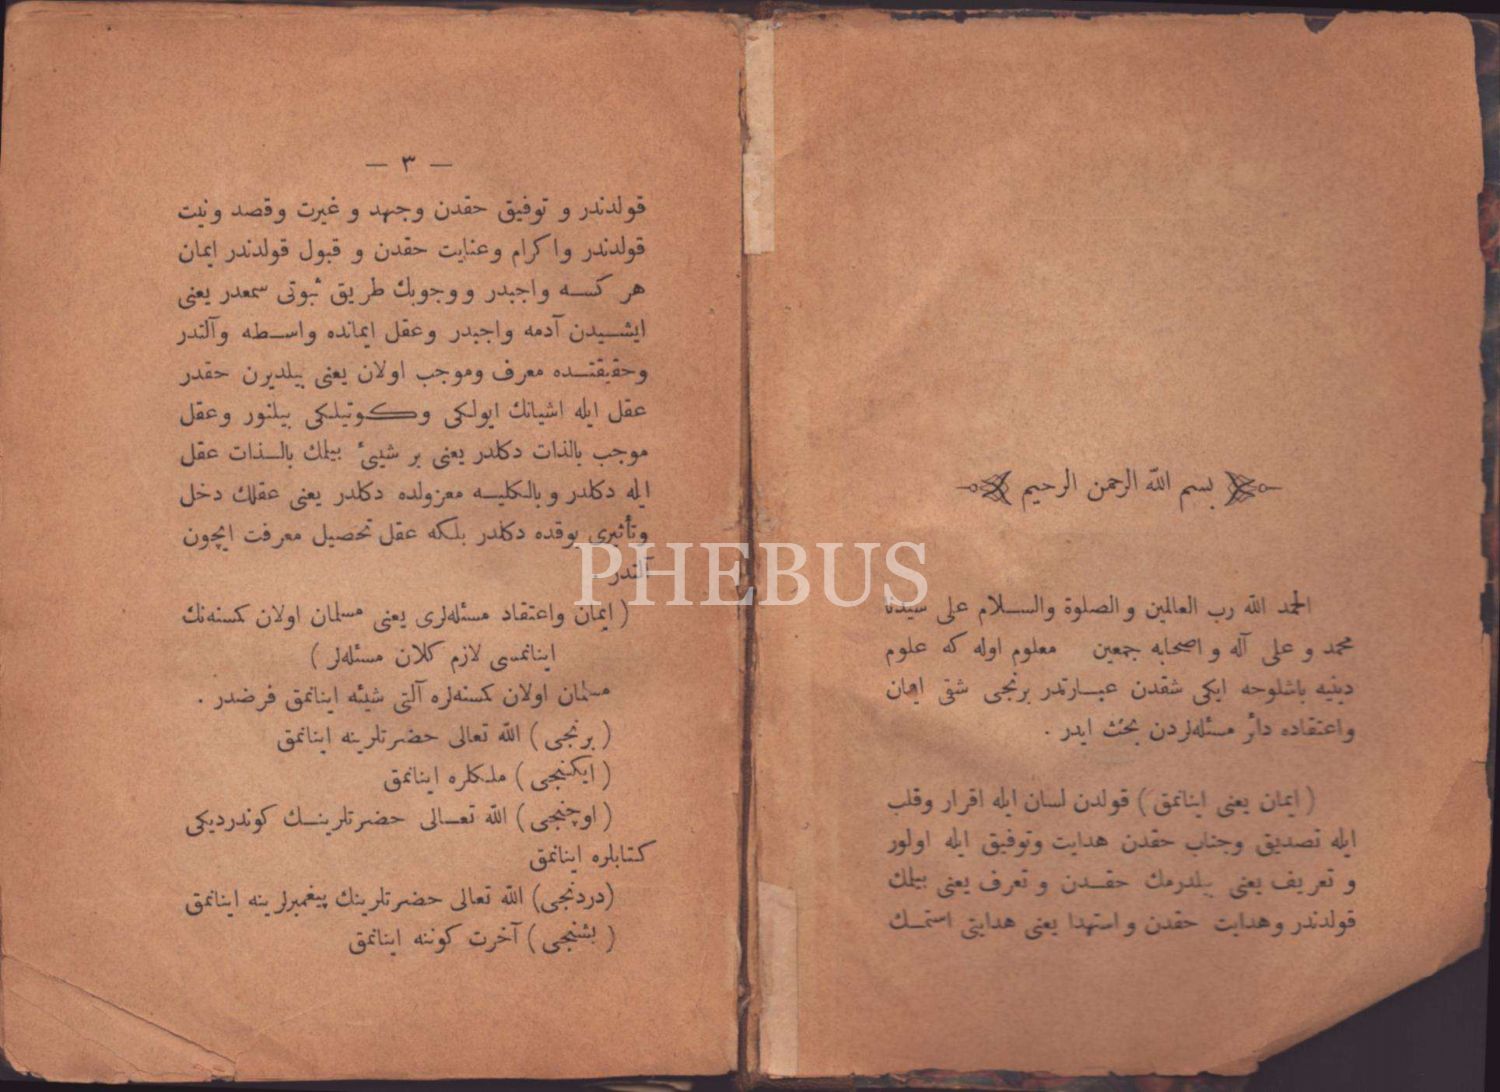 بسم الله الرحمن الرحيم
الحمد الله رب العالمين و الصلوة والسلام على سيدنا
محمد و على آله و اصحابه جمعين معلوم اوله كه علوم
دينيه باشلوجه ايكى شقدن عبارتدر برنجى شقى ايمان
واعتقاده دائر مسئله‌لردن بحث ايدر .
( ايمان يعنى اينانمق ) قولدن لسان ايله اقرار وقلب
ايله تصديق وجناب حقدن هدايت وتوفيق ايله اولور
و تعريف يعنى بيلدرمك حقدن و تعرف يعنى بيلك
قولدندر وهدايت حقدن و استهدا يعنى هدايتى استمك
— ٣ —
قولدندر و توفيق حقدن وجهد و غيرت وقصد ونيت
قولدندر واكرام وعنايت حقدن و قبول قولدندر ايمان
هر كسه واجبدر ووجوبك طريق ثبوتى سمعدر يعنى
ايشيدن آدمه واجبدر وعقل ايمانده واسطه وآلتدر
وحقيقتده معرف وموجب اولان يعنى بيلديرن حقدر
عقل ايله اشيانك ايولكى وكوتيلكى بيلنور وعقل
موجب بالذات دكلدر يعنى بر شيئ بيلمك بالذات عقل
ايله دكلدر و بالكليه معزولده دكلدر يعنى عقلك دخل
وتأثيرى يوقده دكلدر بلكه عقل تحصيل معرفت ايچون
آلتدر
PHEBUS
( ايمان واعتقاد مسئله‌لرى يعنى مسلمان اولان كمسنه‌نك
اينانمسى لازم كلان مسئله‌لر )
مسلمان اولان كمسنه‌لره آلتى شيئه اينانمق فرضدر .
( برنجى ) الله تعالى حضرتلرينه اينانمق
( ايكنجى ) ملكلره اينانمق
( اوچنجى ) الله تعالى حضرتلرينك كوندرديكى
كتابلره اينانمق
(دردنجى) الله تعالى حضرتلرينك پيغمبرلرينه اينانمق
( بشنجى ) آخرت كوننه اينانمق